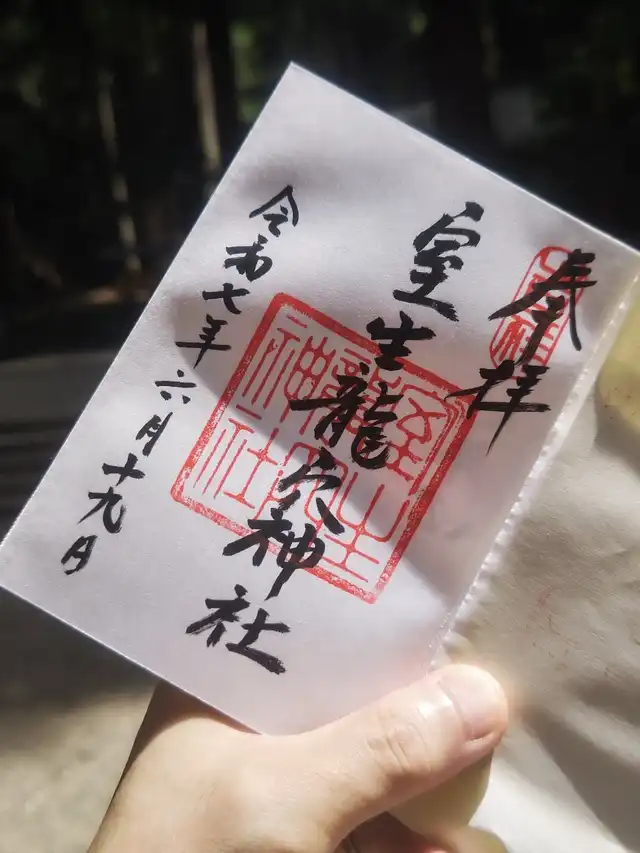 奉拝
室生龍穴神社
令和七年六月十九日
室生
龍穴
神社